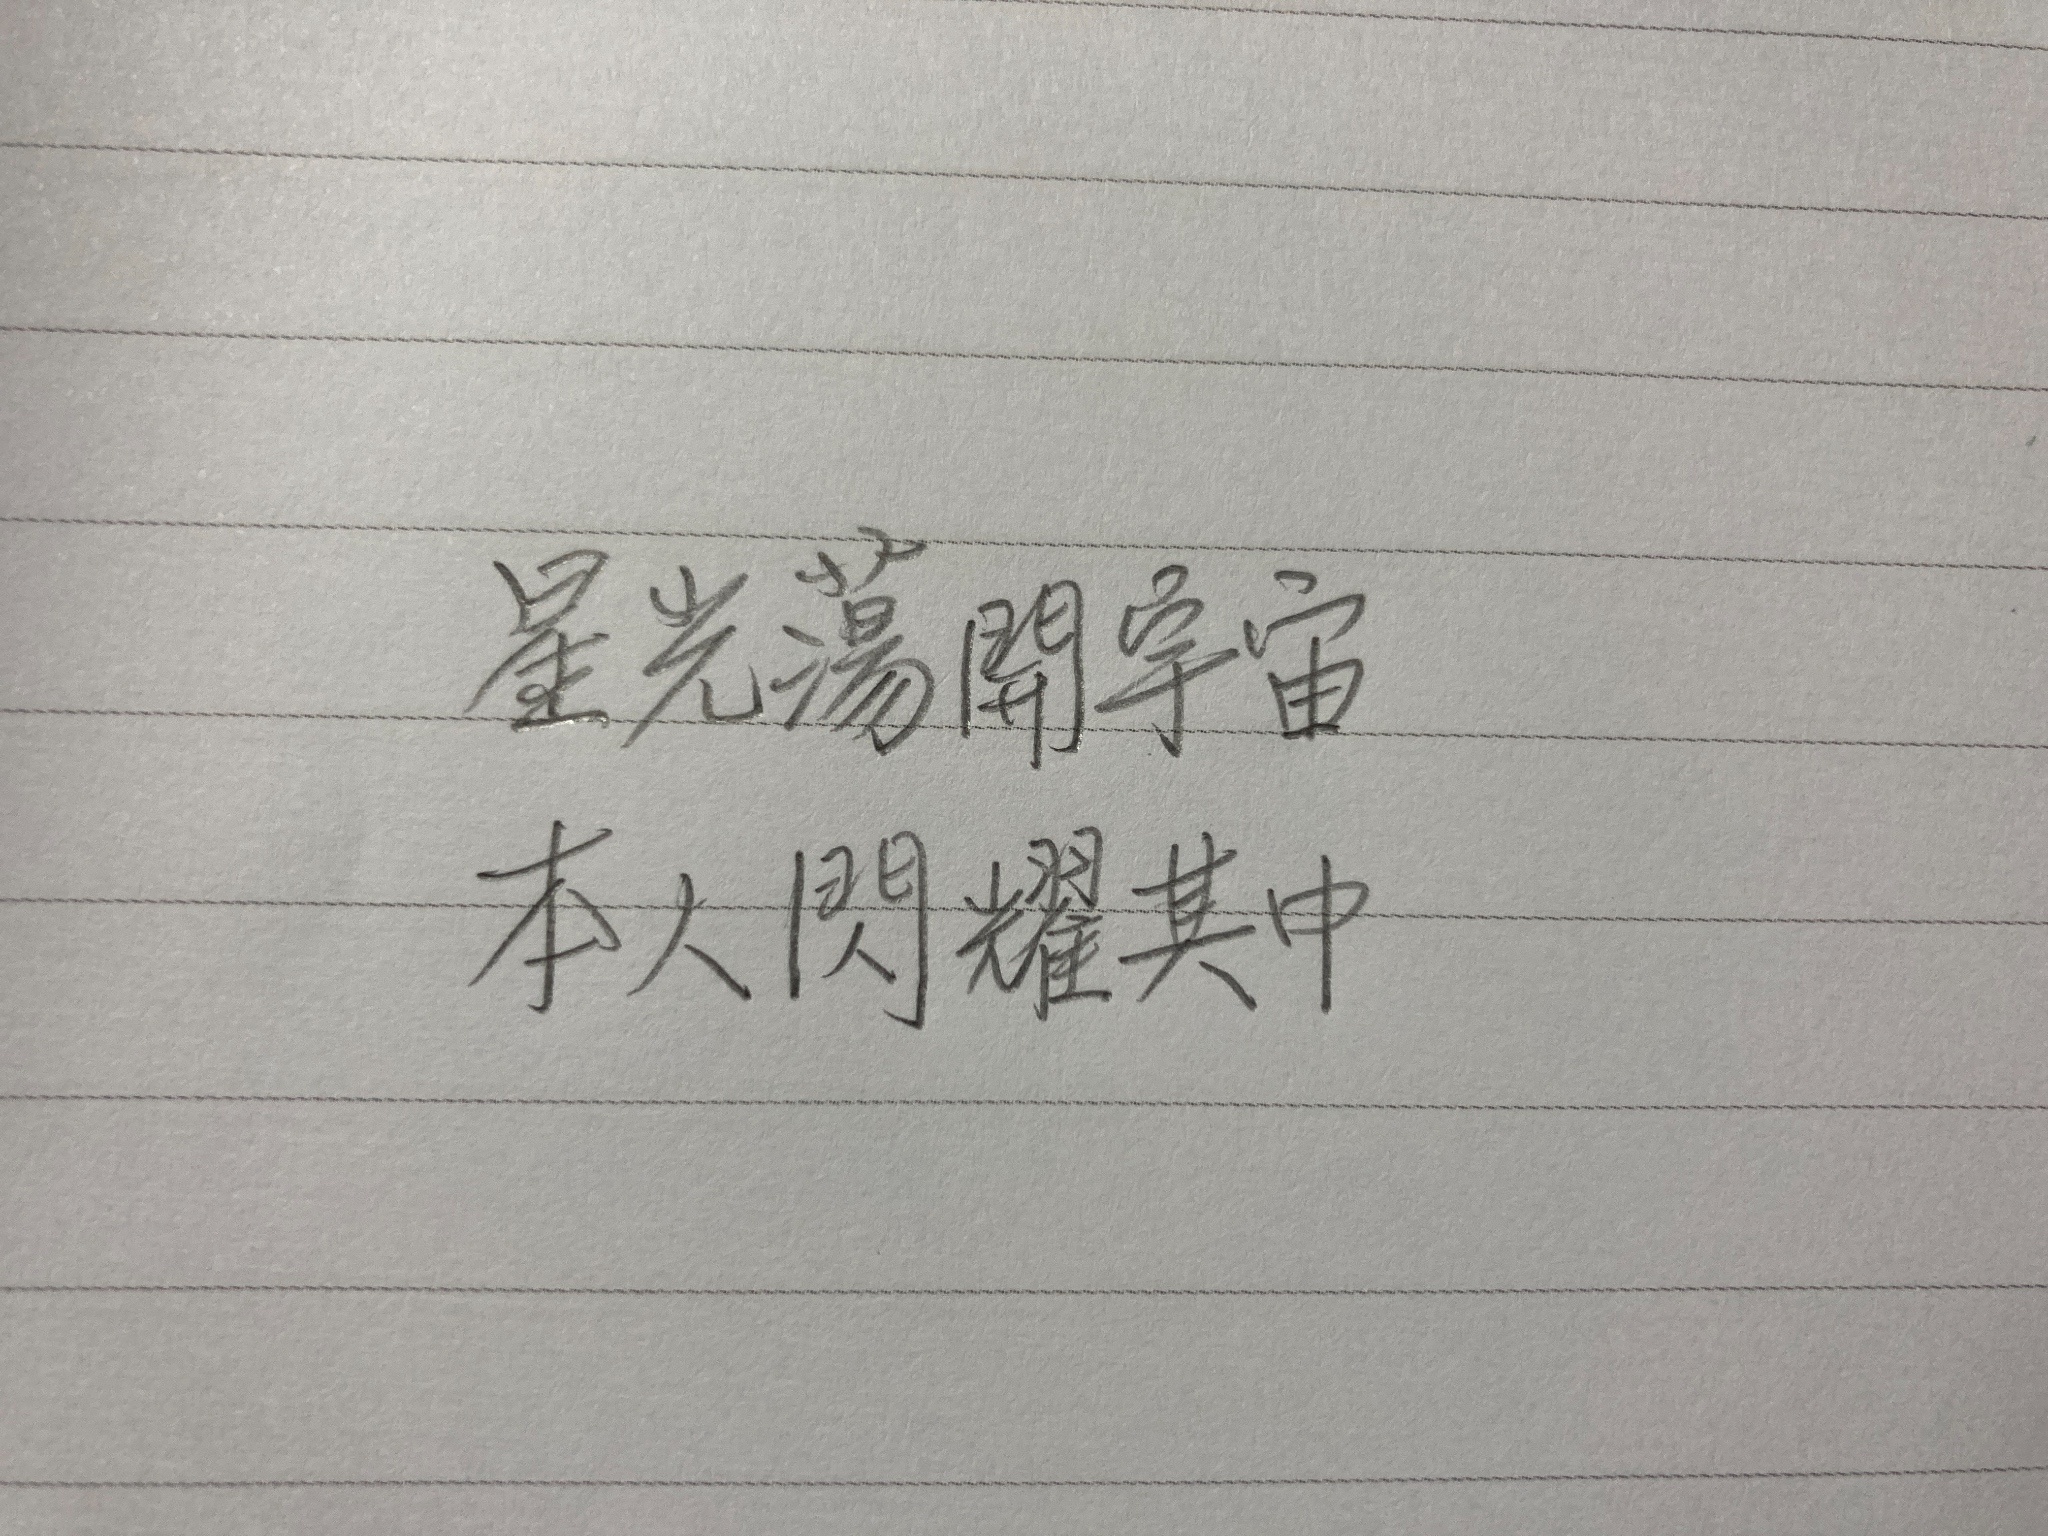 星光蕩開宇宙
本人閃耀其中